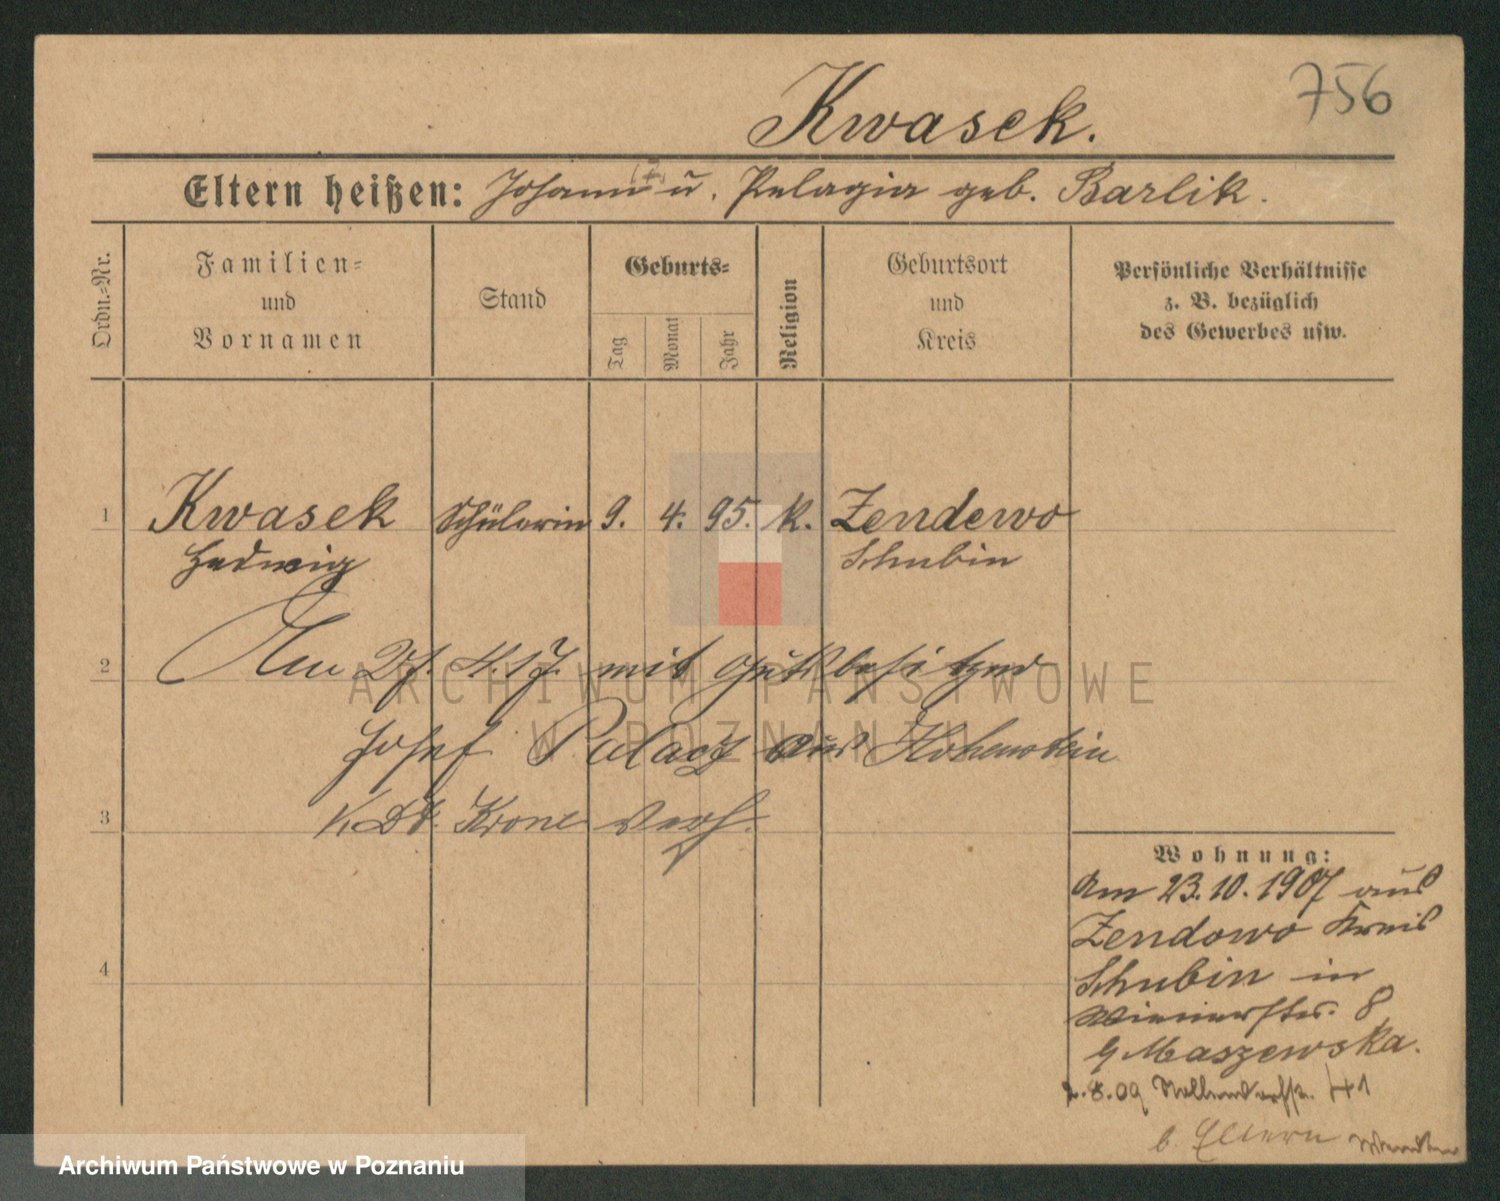 756
Kwasek.
Eltern heißen: Johann u. Pelagia geb. Barlik.
Ordn.-Nr.
Familien-
und
Vornamen
Stand
Geburts-
Tag
Monat
Jahr
Religion
Geburtsort
und
Kreis
Persönliche Verhältnisse
z. B. bezüglich
des Gewerbes usw.
1 Kwasek Schülerin 9. 4. 95. k. Zendowo
Hedwig Schubin
2 Am 27. 4. 17. mit Gutsbesitzer
Josef Palacz aus Hohenstein
3 Krone verh.
4
Wohnung:
Am 23.10.1907 aus
Zendowo Kreis
Schubin in
8
Maszewska.
2.8.09 41
b. Eltern
ARCHIWUM PAŃSTWOWE
W POZNANIU
Archiwum Państwowe w Poznaniu